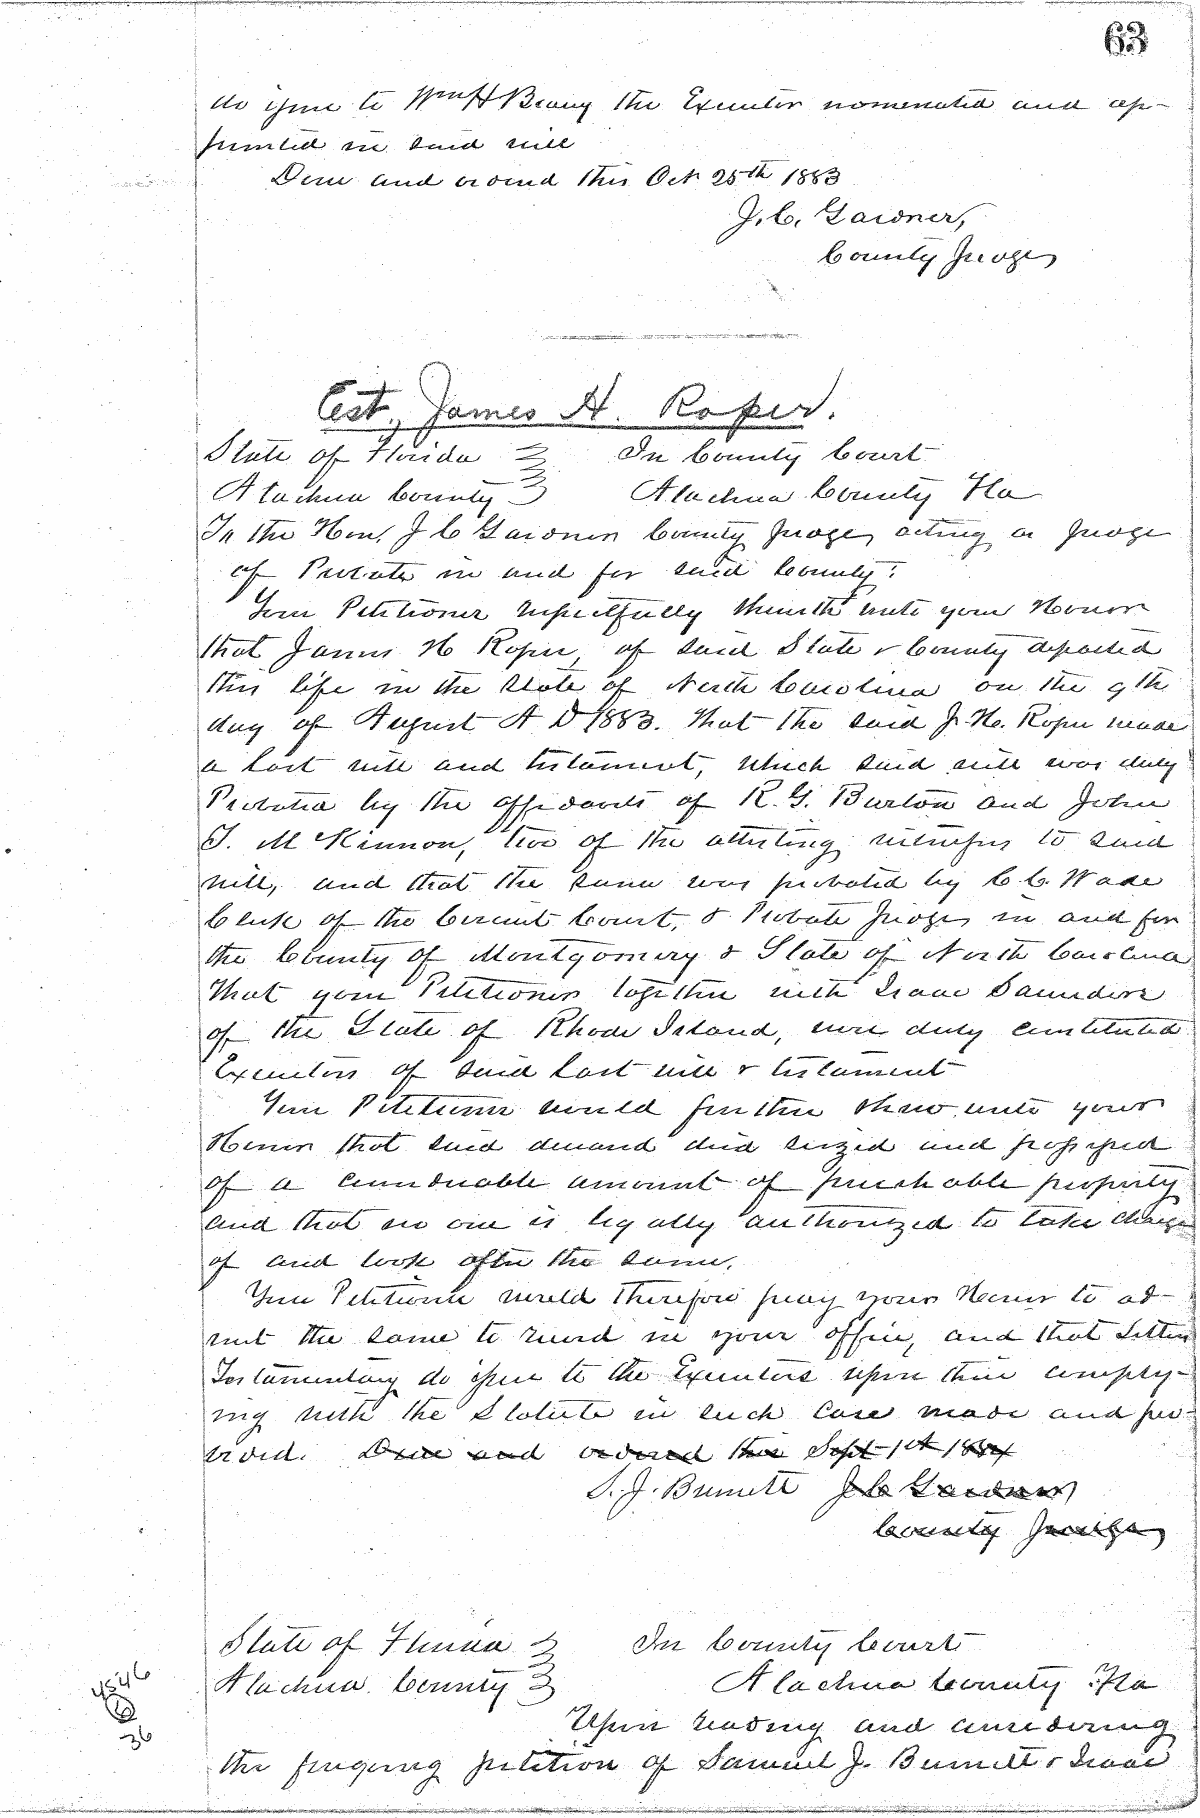 63
do issue to Wm H Beavy the Executor nominated and ap-
pointed in said will
Done and ordered this Oct 25th 1883
J. C. Gardner,
County Judge
Est. James H. Roper.
State of Florida } In County Court
Alachua County } Alachua County Fla
To the Hon. J C Gardner County Judge, acting as Judge
of Probate in and for said County:
Your Petitioner respectfully showeth unto your Honor
that James H Roper, of said State & County departed
this life in the State of North Carolina on the 9th
day of August A D 1883. That the said J. H. Roper made
a last will and testament, which said will was duly
Probated by the affidavits of R. G. Burton and John
T. McKinnon, two of the attesting witnesses to said
will, and that the same was probated by C. C. Wade
Clerk of the Circuit Court, & Probate Judge, in and for
the County of Montgomery & State of North Carolina
That your Petitioner together with Isaac Saunders
of the State of Rhode Island, were duly constituted
Executors of said last will & testament
Your Petitioner would further show unto your
Honor that said demand died seized and possessed
of a considerable amount of perishable property
and that no one is legally authorized to take charge
of and look after the same.
Your Petitioner would therefore pray your Honor to ad-
mit the same to record in your office, and that Letters
Testamentary do issue to the Executors upon their comply-
ing with the Statute in such case made and pro-
vided. Done and ordered this Sept 1st 1884
S. J. Burnett J C Gardner
County Judge
State of Florida } In County Court
Alachua County } Alachua County Fla
Upon reading and considering
the foregoing petition of Samuel J. Burnett & Isaac
4546
36